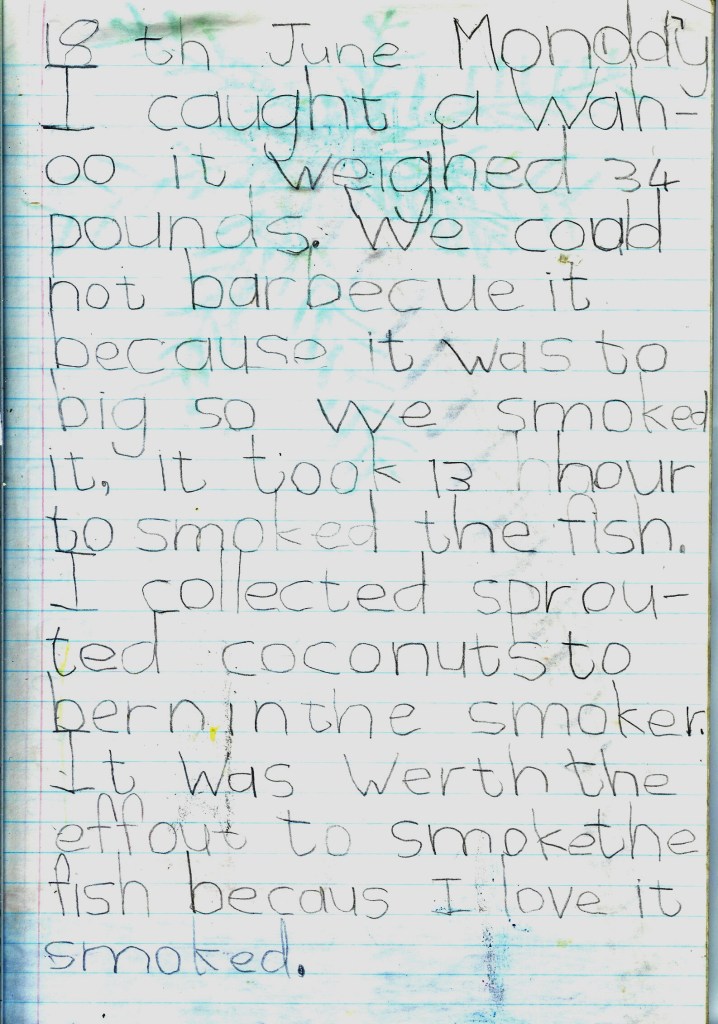 18 th June Monday
I caught a wah-
oo it weighed 34
pounds. We could
not barbecue it
because it was to
big so we smoked
it, it took 13 hour
to smoked the fish.
I collected sprou-
ted coconuts to
bern in the smoker.
It was werth the
effout to smoke the
fish becaus I love it
smoked.